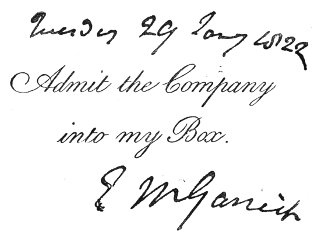 Tuesday 29 Jany 1822
Admit the Company
into my Box.
E M Garrick